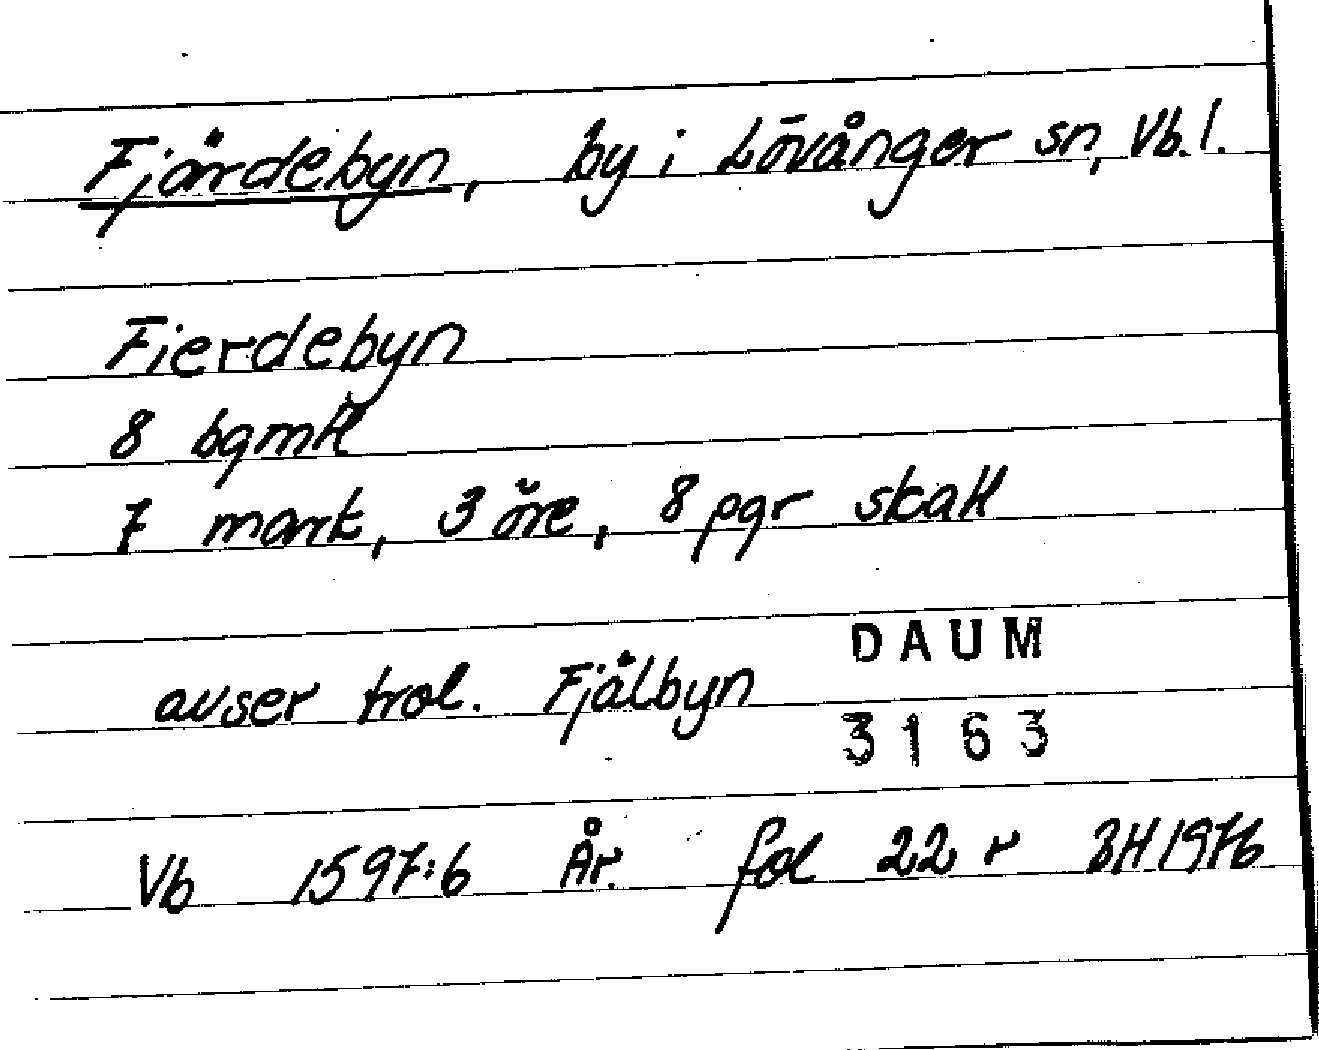 Fjärdebyn, by i Lövånger sn, Vb. l.
Fierdebyn
8 bgmtl
7 mark, 3 öre, 8 pgr skatt
DAUM
avser trol. Fjälbyn
3163
Vb 1597:6 År. fol 22 r BH 1976